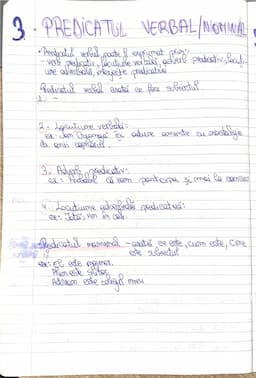 3. PREDICATUL VERBAL/NOMINAL
• Predicatul verbal poate fi exprimat prin:
- verb predicativ, locuțiune verbală, adverb predicativ, locuți-
une adverbială, interjecție predicativă
Predicatul verbal arată ce face subiectul
1. -
2. Locuțiune verbală:
ex: își aduce aminte cu nostalgie
de anii copilăriei.
3. Adverb predicativ:
ex: Probabil că vom participa și noi la
4. Locuțiune adverbială predicativă:
ex:
Predicatul nominal - arată ce este, cum este, cine
este subiectul
ex: El este
este
este colegul meu.